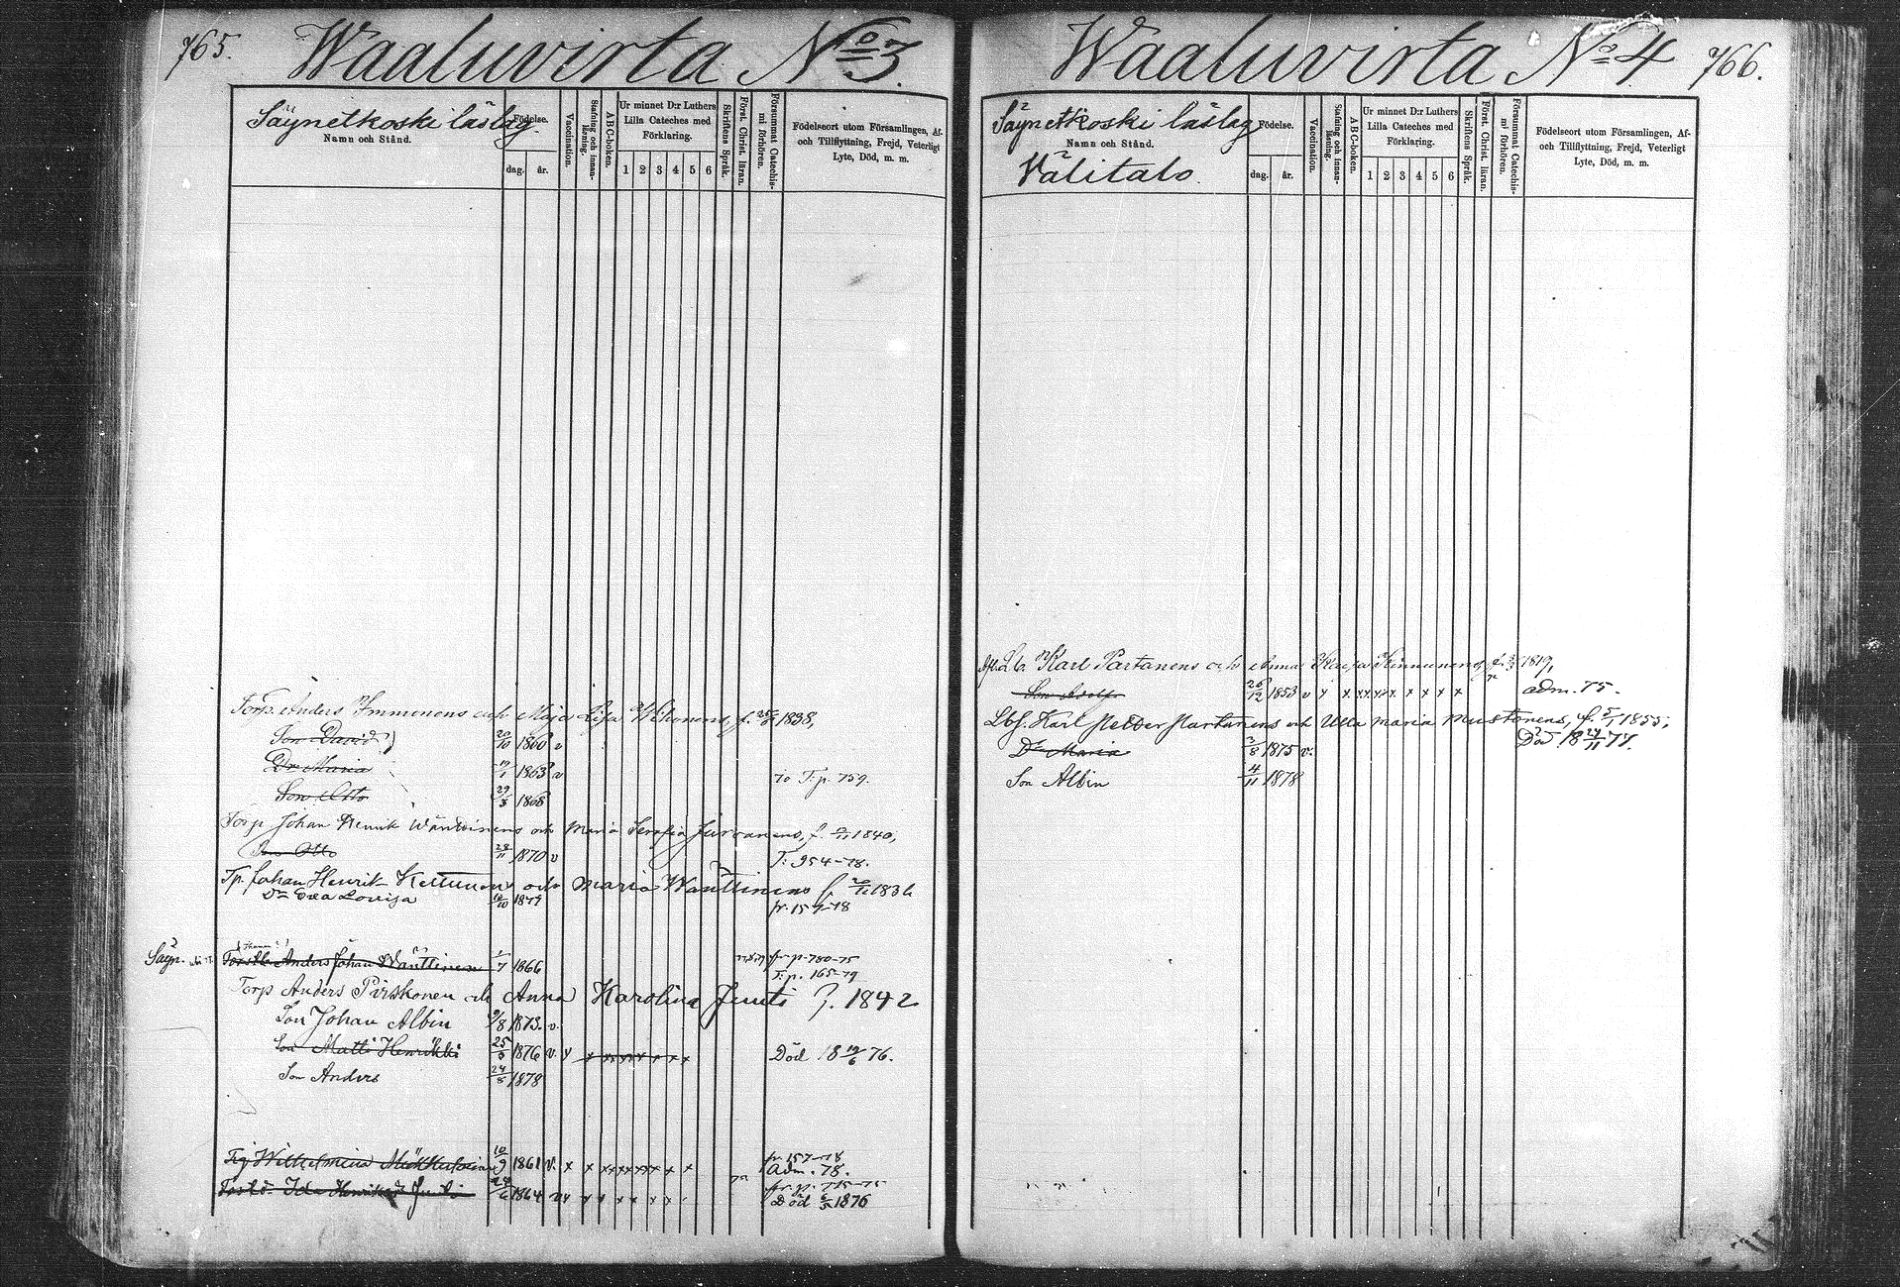 765. Waaluvirta No 3.
Säynetkoski läslag.
Namn och Stånd.
Födelse.
dag. år.
Vaccination.
Stafning och innan-läsning.
ABC-boken.
Ur minnet D:r Luthers Lilla Cateches med Förklaring.
1 2 3 4 5 6
Skriftens Språk.
Först. Christ. läran.
Försummat Catechismi förhören.
Födelseort utom Församlingen, Af-
och Tillflyttning, Frejd, Veterligt
Lyte, Död, m. m.
Torp. Anders Immonens och Maja Lisa f. 1838,
Son David 20/10 1860 v
Dr Maria 1863 v To T. p. 759.
Son Otto 29/8 1868
Torp Johan Henrik Wänttinens och Maria Serafia f. 1840,
Son Otto 28/11 1870 v T: 954-78.
Tp. Johan Henrik Kettunens och Maria Wänttinens f. 1836
Dr Eva Lovisa 1879 fr. 157-78
Säyn.
Anders Johan Wänttinen 1/7 1866 fr. p. 780-75
T: p. 165-79
Torp Anders Pirskonen och Anna Karolina Junti f. 1842
Son Johan Albin 9/8 1873. v.
Son Matti Henrikki 25/5 1876 v. Död 18 19/6 76.
Son Anders 24/5 1878
Wilhelmina 10/9 1861 v. x x x x x x x x x fr. 157-78
Adm. 78.
Ida 1864 v x fr. p. 715-75
Död 1876
Waaluvirta No 4 766.
Säynetkoski läslag
Namn och Stånd.
Välitalo.
Födelse.
dag. år.
Vaccination.
Stafning och innan-läsning.
ABC-boken.
Ur minnet D:r Luthers Lilla Cateches med Förklaring.
1 2 3 4 5 6
Skriftens Språk.
Först. Christ. läran.
Försummat Catechismi förhören.
Födelseort utom Församlingen, Af-
och Tillflyttning, Frejd, Veterligt
Lyte, Död, m. m.
Karl Partanens och Anna Kinnunens f. 1819,
Son Adolf 26/12 1853 v x x x x x x x x x adm. 75.
Lbf. Karl Petter Partanens och Ulla Maria Mustonens, f. 5/1 1855;
Dr Maria 2/8 1875 v. Död 18 24/11 77.
Son Albin 4/11 1878